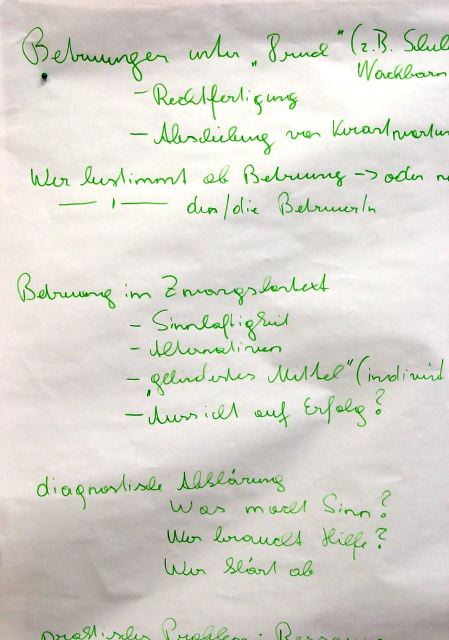 Betreuungen unter "Druck" (z.B. Schul
Nachbarn
- Rechtfertigung
- Abschiebung von Verantwortun
Wer bestimmt ob Betreuung -> oder n
— " — den/die BetreuerIn
Betreuung im Zwangskontext
- Sinnhaftigkeit
- Alternativen
- "gelindestes Mittel" (individ
- Aussicht auf Erfolg?
diagnostische Abklärung
Was macht Sinn?
Wer braucht Hilfe?
Wer klärt ab
praktisches Problem: Ressour